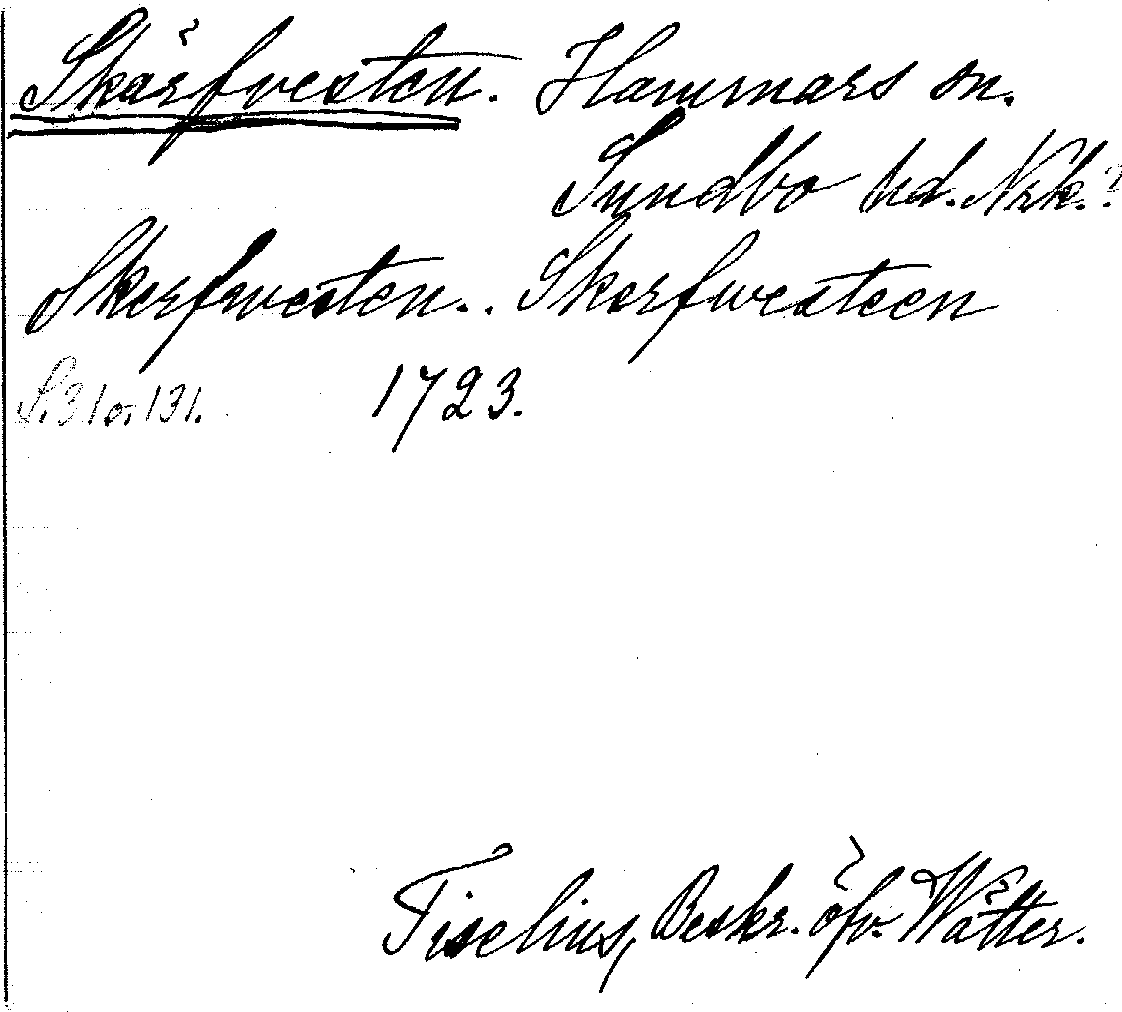 Skärfvesten. Hammars sn.
Sundbo hd. Nrk.?
Skerfwesten.. Skerfwesteen
S. 31 o. 131. 1723.
Tiselius, Beskr. öfv. Wätter.